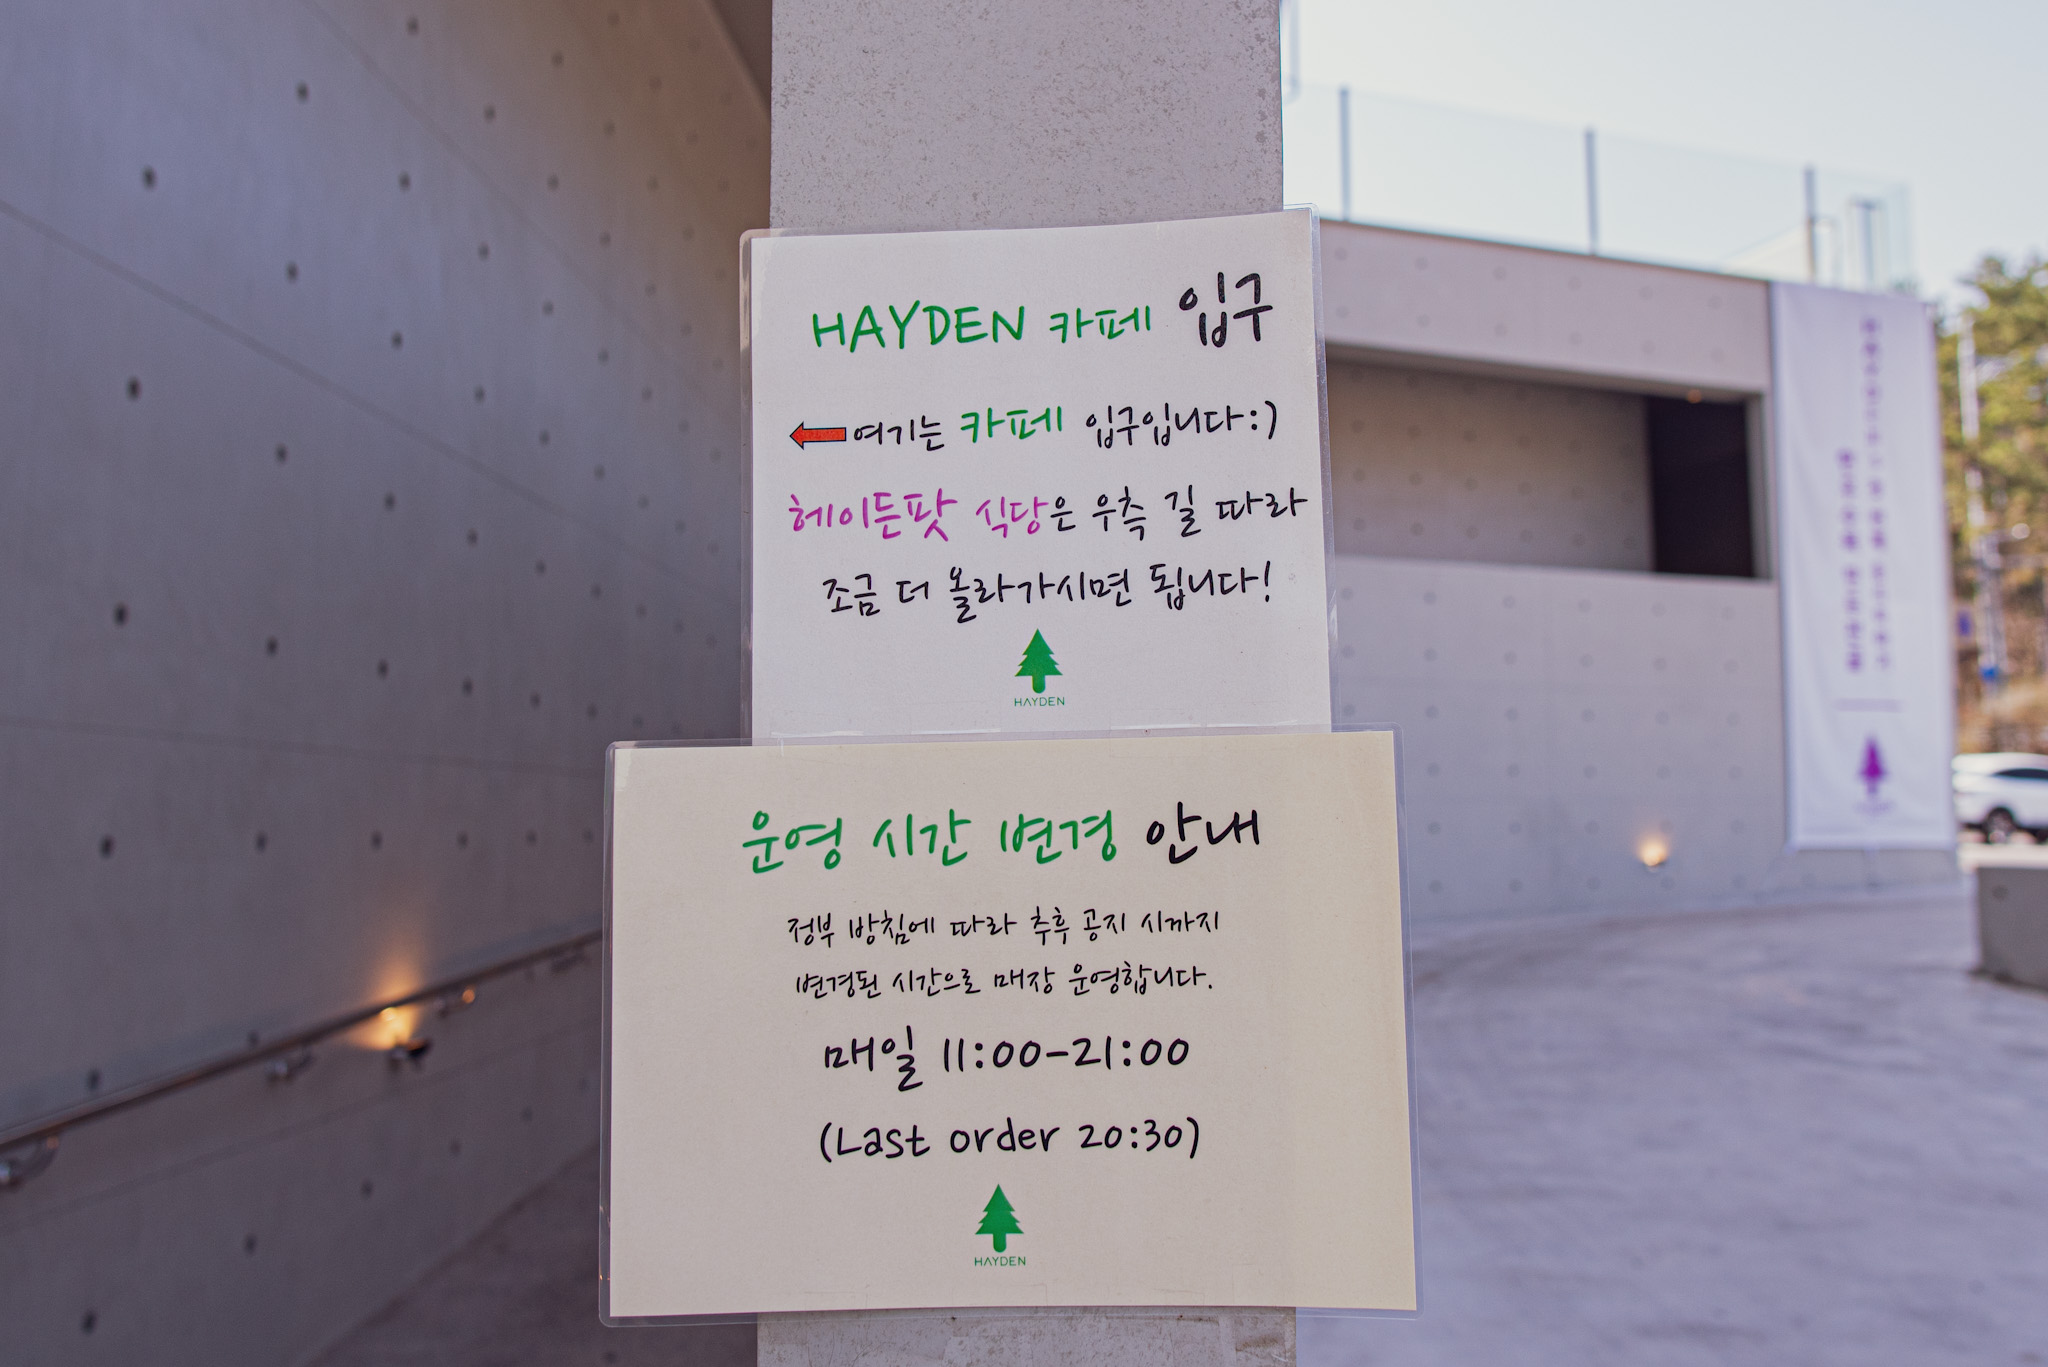 HAYDEN 카페 입구
여기는 카페 입구입니다:)
헤이든팟 식당은 우측 길 따라
조금 더 올라가시면 됩니다!
HAYDEN
운영 시간 변경 안내
정부 방침에 따라 추후 공지 시까지
변경된 시간으로 매장 운영합니다.
매일 11:00-21:00
(Last order 20:30)
HAYDEN